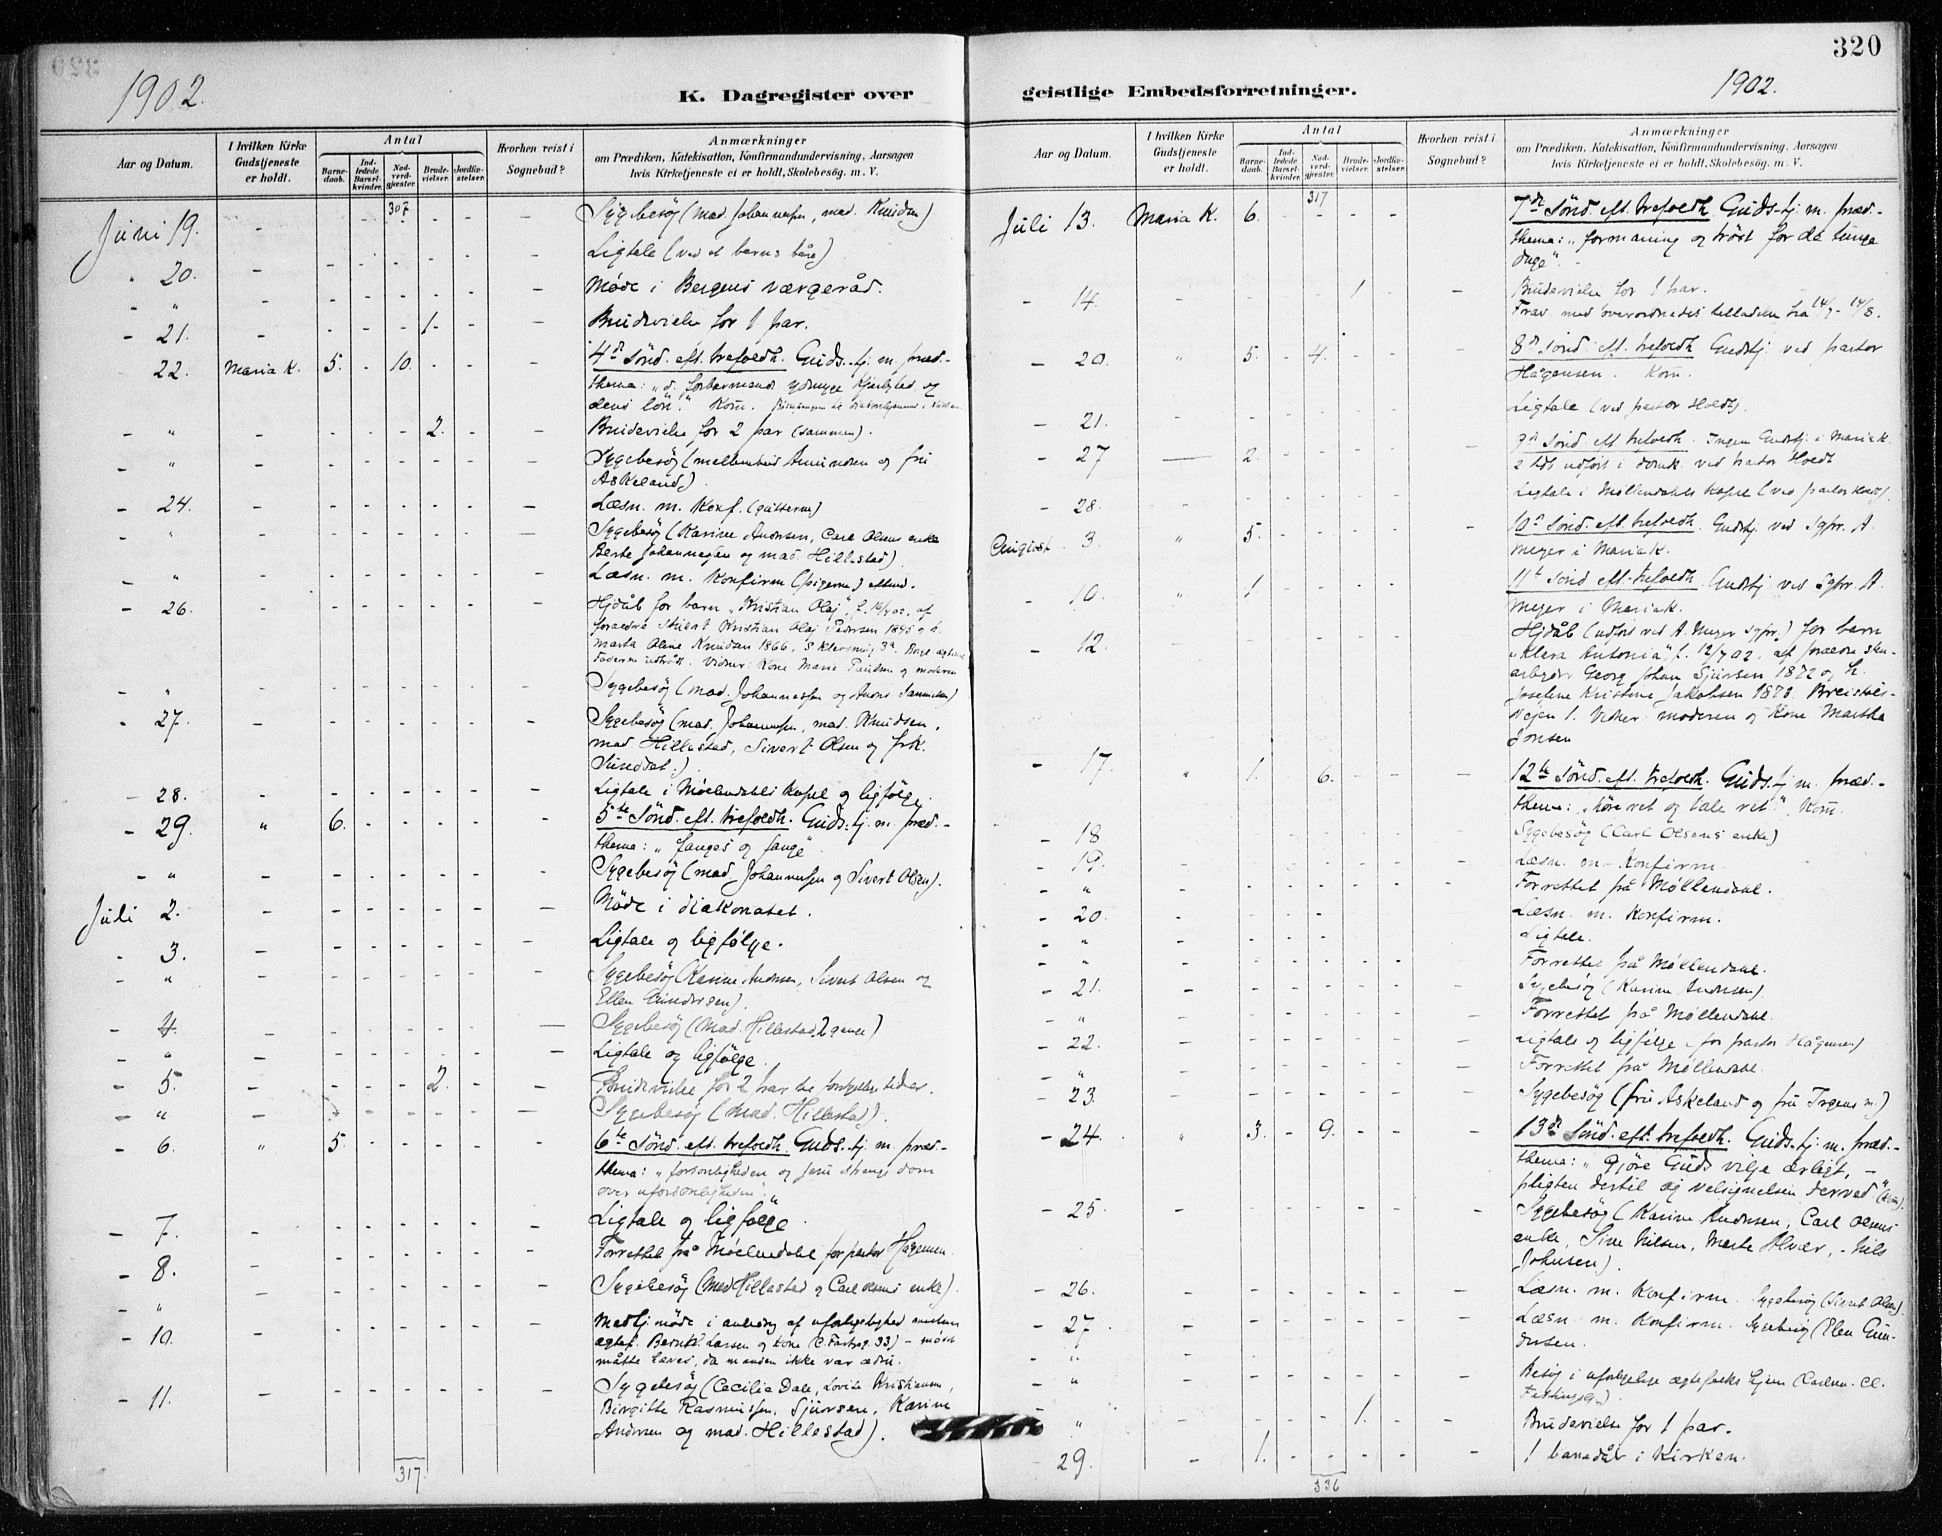 320
1902.
1902.
K. Dagregister over
geistlige Embedsforretninger.
Aar og Datum.
I hvilken Kirke Gudstjeneste er holdt.
Antal
Barne-daab.
Ind-ledede Barsel-kvinder.
Nad-verd-gjester.
Brude-vielser.
Jordfæ-stelser.
Hvorhen reist i Sognebud?
Anmærkninger
om Prædiken, Katekisation, Konfirmandundervisning, Aarsagen
hvis Kirketjeneste ei er holdt, Skolebesøg. m. V.
307
Juni 19. Sygebesøg (mad. Johannesen, mad. Knudsen)
Ligtale (ved et barns båre)
" 20. Møde i Bergens værgeråd.
- 21. 1. Brudevielse for 1 par.
- 22. Maria K. 5. 10. 4de Sønd. eft. trefoldh. Guds-tj. m. præd.-
thema: "d. forbarmende ydmyge Kjærlighed og
dens løn". Kom.
- " 2. Brudevielse for 2 par (sammen).
- " Sygebesøg (mellemhuset Amundsen og fru
Askeland)
- 24. Læsn. m. Konf. (gutterne)
- " Sygebesøg (Karine Andersen, Carl Olsens enke
Berte Johannesen og mad. Hillestad)
- " Læsn. m. Konfirm (pigerne)
- 26. Hjdåb for barn "Kristian Olaj", af
forældre Kristian Olaj Pedersen 1895 og h.
Marta Oline Knudsen 1866,
Vidner: Kone Marie Paulsen og moderen
- " Sygebesøg (mad. Johannessen og
- 27. Sygebesøg (mad. Johannesen, mad. Knudsen,
mad. Hillestad, Sivert Olsen og frk.
Sundal.)
- 28. Ligtale i Møllendals kapel og ligfølge.
- 29. " 6. 5te Sønd. eft. trefoldh. Guds-tj. m. præd.-
thema: "fanges og fange"
- " Sygebesøg (mad. Johannesen og Sivert Olsen).
Juli 2. Møde i diakonatet.
- 3. Ligtale og ligfølge.
- " Sygebesøg (Karine Andersen, Sivert Olsen og
Ellen Gundersen).
- 4. Sygebesøg (Mad. Hillestad 2 gange)
- " Ligtale og ligfølge.
- 5. 2. Brudevielse for 2 par til forskjellige tider.
- " Sygebesøg (Mad. Hillestad).
- 6. " 5. 6te Sønd. eft. trefoldh. Guds-tj. m. præd.-
thema: "forsonligheden og Jesu strenge dom
over uforsonligheden".
- 7. Ligtale og ligfølge
- 8. Forrettet på Møllendal for pastor Hagensen.
- " Sygebesøg (Mad Hillestad og Carl Olsens enke).
- 10. Mødte i anledning af uforligelighed mellem
ægtef. Larsen og Kone (C. Fastings g. 33) - mødet
måtte hæves, da manden ikke var ædru.
- 11. Sygebesøg (Cecilia Dale, Lovise Kristiansen,
Birgitte Rasmussen, Sjursen, Karine
Andersen og mad. Hillestad).
317.
Aar og Datum.
I hvilken Kirke Gudstjeneste er holdt.
Antal
Barne-daab.
Ind-ledede Barsel-kvinder.
Nad-verd-gjester.
Brude-vielser.
Jordfæ-stelser.
Hvorhen reist i Sognebud?
Anmærkninger
om Prædiken, Katekisation, Konfirmandundervisning, Aarsagen
hvis Kirketjeneste ei er holdt, Skolebesøg. m. V.
317
Juli 13. Maria K. 6. 7de Sønd. eft. trefoldh. Guds-tj. m. præd.-
thema: "formaning og trøst for de tunge
dage".
- 14. 1. Brudevielse for 1 par.
Frav. med overordnedes tilladelse fra 14/7 - 14/8.
- 20. " 5. 4. 8de Sønd. eft. trefoldh Gudstj. ved pastor
Hagensen. Kom.
- 21. Ligtale (ved pastor Holdt).
- 27 2. 9de Sønd. eft. trefoldh. Ingen Gudstj. i Mariak.
2 udført i domk. ved pastor Holdt
- 28. Ligtale i Møllendals Kapel (ved pastor Holdt)
August 3. " 5. 10de Sønd. eft. trefoldh. Gudstj. ved Sgpr. A.
Meyer i Mariak.
- 10. " 1. 11te Sønd eft. trefoldh. Gudstj. ved Sgpr. A.
Meyer i Mariak.
- 12. Hjdåb (udført ved A. Meyer sgpr.) for barn
"Klara Antonia" f. 12/7 02, af forældre sten-
arbejder Georg Johan Sjursen 1872 og h.
Joseline Kristine Jakobsen 1873. Breistøls-
vejen 1. Vidner: moderen og Kone Martha
Jonsen
- 17. " 1. 6. 12te Sønd. eft. trefoldh. Guds-tj. m. præd.-
thema: "høre ret og tale ret." Kom.
- 18 Sygebesøg (Carl Olsens enke)
- 19. Læsn. m. Konfirm.
- " Forrettet på Møllendal.
- 20. Læsn. m. Konfirm.
- " Ligtale.
- " Forrettet på Møllendal.
- 21. Sygebesøg (Karine Andersen)
- " Forrettet på Møllendal.
- 22. Ligtale og ligfølge (for pastor Hagensen)
- " Forrettet på Møllendal.
- 23. Sygebesøg (fru Askeland og fru Irgens m.)
- 24. " 3. 9. 13de Sønd. eft. trefoldh. Guds-tj. m. præd.-
thema: "Gjøre Guds vilje ærligt, -
pligten dertil og velsignelsen derved" (Kom).
- 25 Sygebesøg (Karine Andersen, Carl Olsens
enke, Sine Nilsen, Marte Alvær, - Nils
Johnsen).
- 26. Læsn. m. Konfirm. Sygebesøg (Sivert Olsen).
- 27. Læsn. m. Konfirm. Sygebesøg (Elen Gun-
dersen.
- " Besøg i uforligelige ægtefolks hjem
- " 1. Brudevielse for 1 par.
29. 1. 1 barnedåb i Kirken.
336